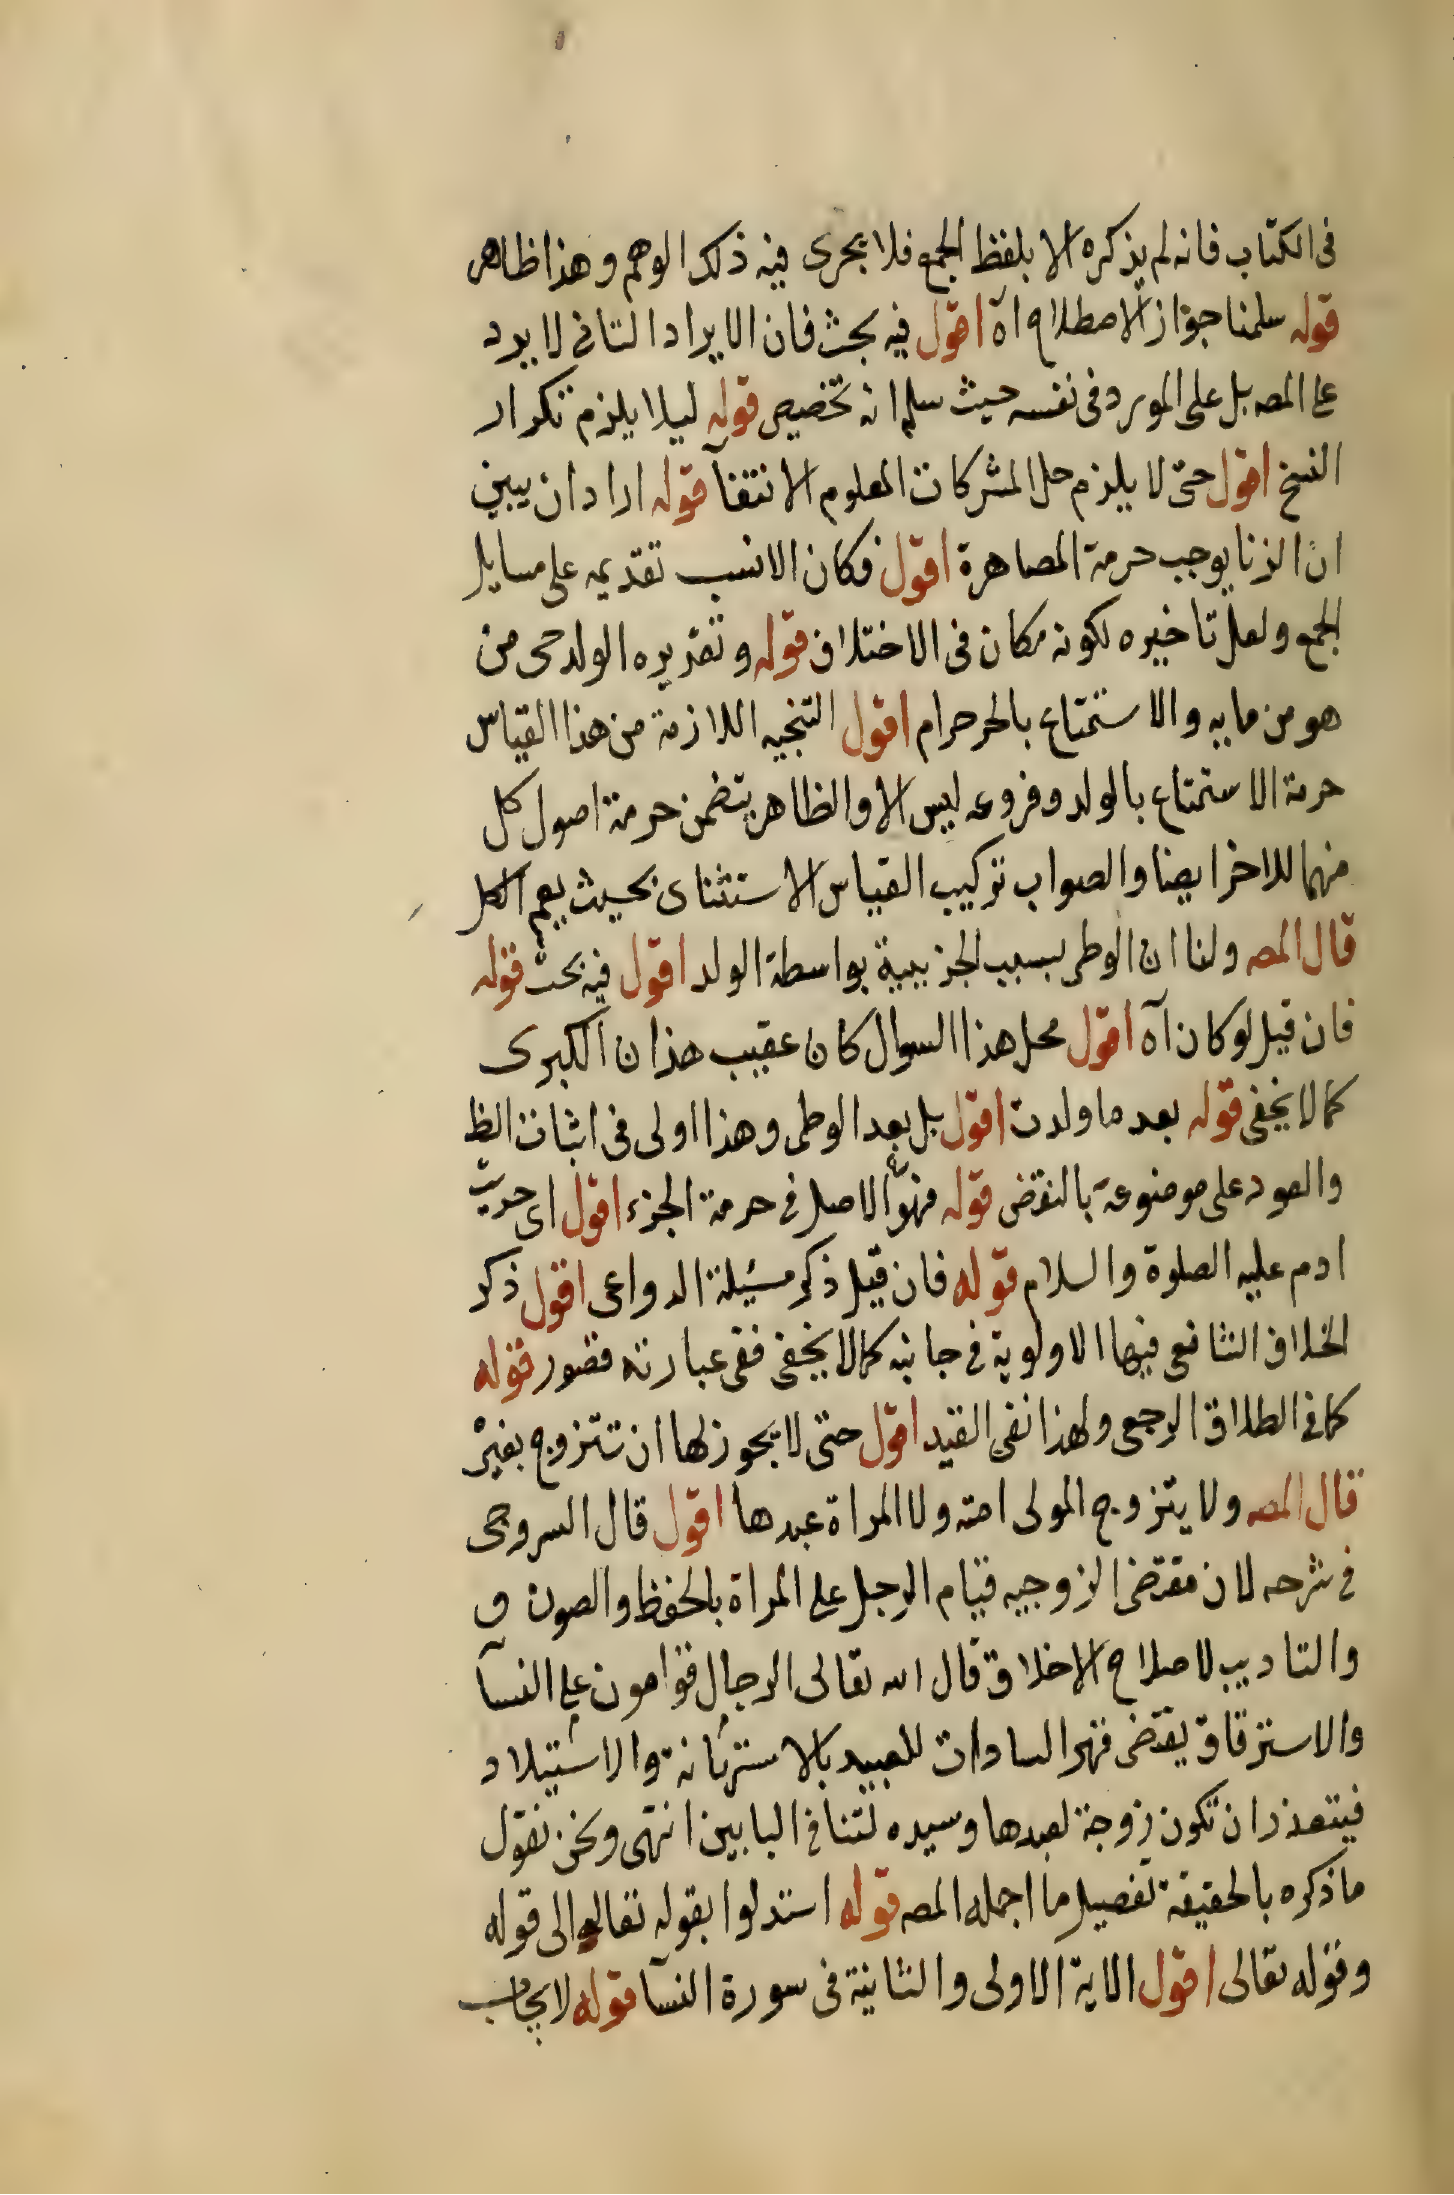 فى الكتاب فانه لم يذكره الا بلفظ الجمع فلا يجرى فيه ذلك الوهم وهذا ظاهر
قوله سلمنا جواز الاصطلاح آه اقول فيه بحث فان الايراد الثانى لا يرد
على المصه بل على المورد فى نفسه حيث سلم انه تخصيص قوله ليلا يلزم تكرار
النسخ اقول حتى لا يلزم حل المشركات المعلوم الانتفآ قوله اراد ان يبين
ان الزنا يوجب حرمة المصاهرة اقول فكان الانسب تقديمه على مسايل
الجمع ولعل تاخيره لكونه مكان فى الاختلاف قوله وتقديره الولد حى من
هو من مايه والاستمتاع بالحر حرام اقول التنجيه اللازمة من هذا القياس
حرمة الاستمتاع بالولد وفروعه ليس الا والظاهر يتضمن حرمة اصول كل
منهما للاخر ايضا والصواب تركيب القياس الاستثناى بحيث يعم الكل
قال المصه ولنا ان الوطى بسبب الجزييية بواسطة الولد اقول فيه بحث قوله
فان قيل لو كان آه اقول محل هذا السوال كان عقيب هذان الكبرى
كما لا يخفى قوله بعد ما ولدت اقول بل بعد الوطى وهذا اولى فى اثبات الظ
والعود على موضوعة بالنقض قوله فهو الاصل فى حرمة الجزء اقول اى حريت
ادم عليه الصلوة والسلام قوله فان قيل ذكر مسيلة الدواعى اقول ذكر
الخلاف الشافعى فيها الاولوية فى جانبه كما لا يخفى ففى عبارته قصور قوله
كما فى الطلاق الرجعى ولهذا نفى القيد اقول حتى لا يجوز لها ان تتزوج بغير
قال المصه ولا يتزوج المولى امته ولا المراة عبدها اقول قال السروجى
فى شرحه لان مقتضى الزوجيه قيام الرجل على المراة بالحفظ والصون و
والتاديب لاصلاح الاخلاق قال الله تعالى الرجال قوامون على النسآ
والاسترقاق يقتضى قهر السادات للعبيد بالاستهانة والاستيلاد
فيتعذر ان تكون زوجة لعبدها وسيده لتنافى البابين انتهى ونحن نقول
ما ذكره بالحقيقة تفصيل ما اجمله المصه قوله استدلوا بقوله تعالى الى قوله
وقوله تعالى اقول الاية الاولى والثانية فى سورة النسآ قوله لا يجاب